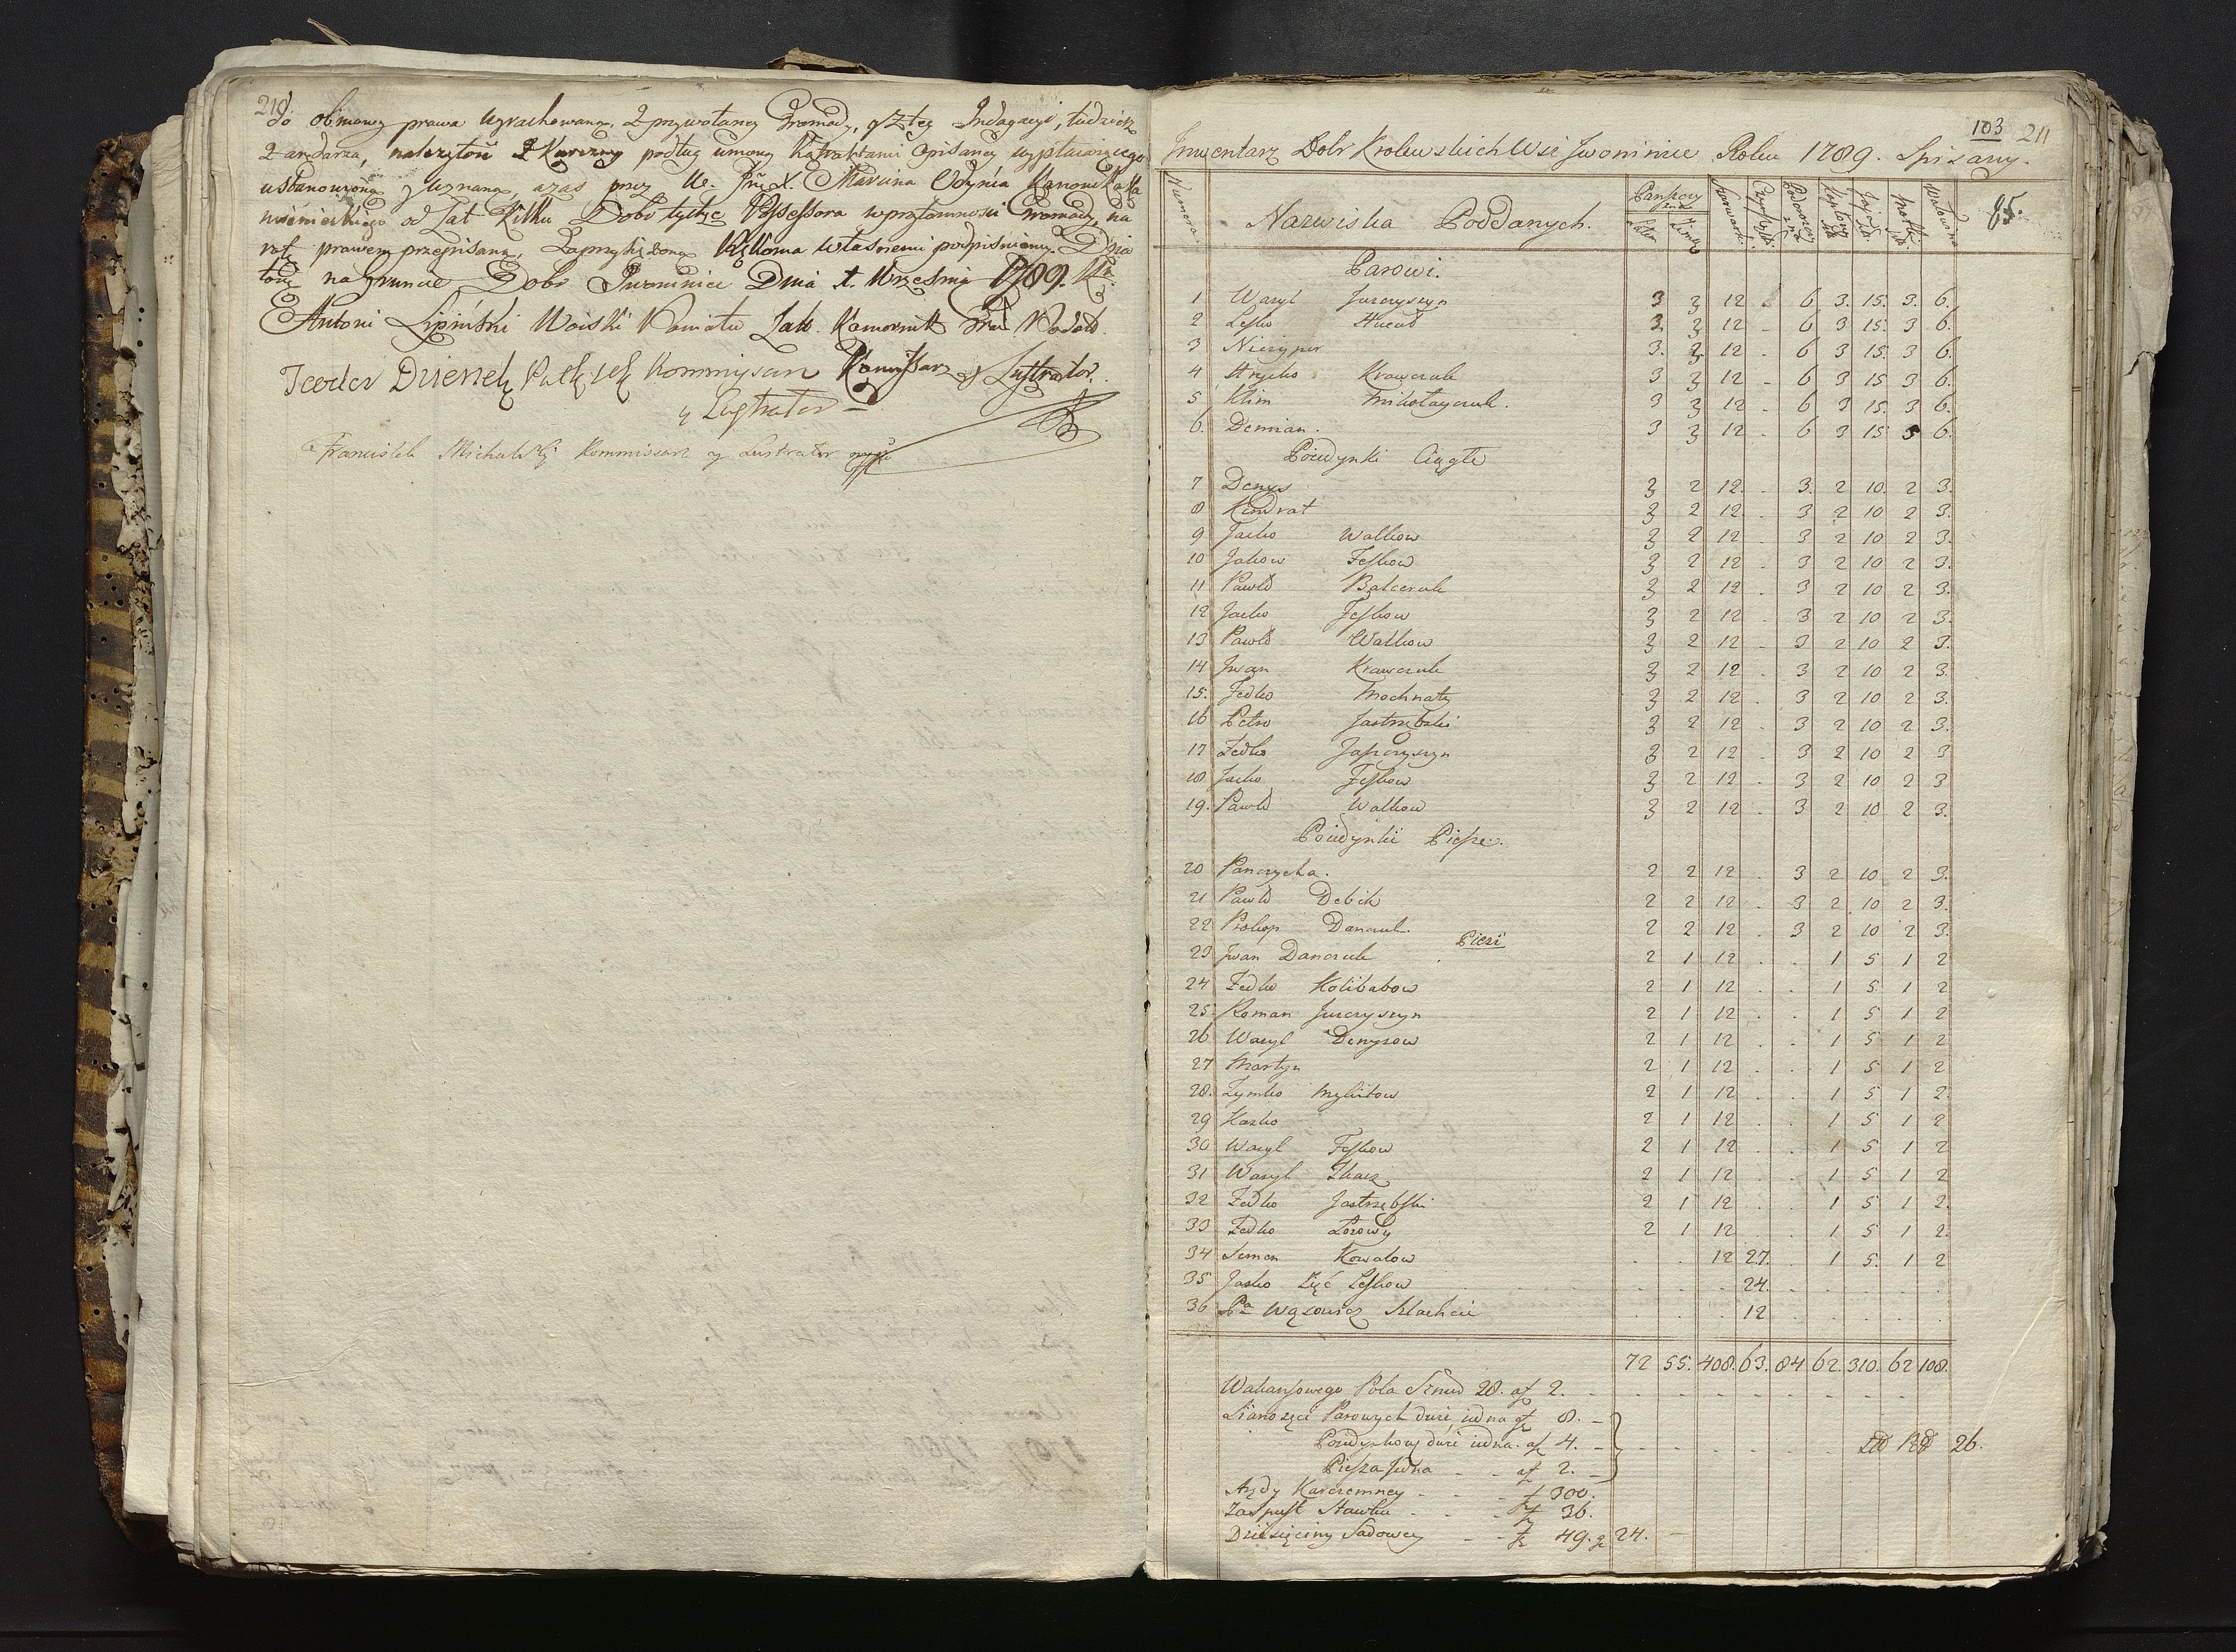 210.
do obmowy prawa wyrachowaną, z przywołaney Gromady, y z tey Indagacyi, tudzież
z arędarza, należytość z Karczmy podług umowy Kątraktami opisaney wypłacaiącego
ustanowioną y uznaną, a zas przez W. Marcina
od Lat Kilku Dobr tychże Possessora w przytomnosci Gromady, na
rotę prawem przepisaną, Zaprzysiężoną Rękoma własnemi podpisuiemy. Działo się
na gruncie Dobr Iwonince Dnia 1. Września 1789. R.
Antoni Lipiński Woiski Powiatu Komornik
Kommissarz y Lustrator.
Teodor Kommisarz
y Lustrator
Franciszek Michalski Kommissarz y Lustrator mpp
103 211
Inwentarz Dobr Krolewskich Wsi Iwonince Roku 1789. Spisany.
Numera. Nazwiska Poddanych. Panszczy zna Lato Zima Czynsze 85.
Parowi.
1 Wasyl Jurczyszyn 3 3 12 - 6 3. 15. 3. 6.
2 Lesko Hucuł 3 3 12 - 6 3 15. 3 6.
3 Niczypor 3. 3. 12 - 6 3 15. 3 6.
4 Hryćko Krawczuk 3 3 12 - 6 3 15 3 6.
5 Klim Mikołayczuk. 3 3 12 - 6 3 15. 3 6.
6. Demian. 3 3 12 - 6 3 15 3 6.
Poiedynki Ciągłe
7 Denys 3 2 12. . 3. 2 10. 2 3.
8 Kondrat 3 2 12 . 3 2 10 2 3.
9 Jacko Walkow 3 2 12 . 3 2 10 2 3.
10 Jakow Feskow 3 2 12 . 3 2 10 2 3.
11 Pawło Balcerak 3 2 12 . 3 2 10 2 3.
12 Jacko Feskow 3 2 12 . 3 2 10 2 3.
13 Pawło Walkow 3 2 12 . 3 2 10 2 3.
14 Jwan Krawczuk 3 2 12 . 3 2 10 2 3.
15. Fedko Mochnaty 3 2 12 . 3 2 10 2 3.
16 Petro Jastrzębski 3 2 12 . 3 2 10 2 3.
17 Fedko Jasczyszyn 3 2 12 . 3 2 10 2 3
18 Jacko Feskow 3 2 12 . 3 2 10 2 3
19. Pawło Walkow 3 2 12 . 3 2 10 2 3.
Poiedynki Piesze.
20 Panczycha. 2 2 12 . 3 2 10 2 3.
21 Pawło Debik 2 2 12 . 3 2 10 2 3.
22 Prokop Danczuk. 2 2 12 . 3 2 10 2 3.
Piesi
23 Jwan Danczuk 2 1 12 . . 1 5 1 2
24 Fedko Kolibabow 2 1 12 . . 1 5. 1 2
25. Roman Jurczyszyn 2 1 12 . . 1 5 1 2
26 Wasyl Denysow 2 1 12 . . 1 5 1 2
27 Martyn 2 1 12 . . 1 5 1 2
28. Tymko Mykitow 2 1 12 . . 1 5 1 2.
29 Hasko 2 1 12 . . 1 5 1 2
30 Wasyl Feskow 2 1 12 . . 1 5 1 2
31 Wasyl Tkacz 2 1 12 . . 1 5 1 2
32 Fedko Jastrzębski 2 1 12 . . 1 5 1 2.
33 Fedko Łozowy 2 1 12 . . 1 5 1 2.
34 Semen Kowalow . . 12 27. . 1 5. 1 2
35 Jasko Zięć Leskow . . . 24. . . . . .
36 Pa Wąsowicz Szlachcic . . . 12 . . . . .
72 55. 408. 63. 84 62. 310. 62 108.
Wakansowego Pola Sznur 28. af 2.
Sianożęci Parowych dwie, iedna af 8.
Poiedynkowey dwie iedna. af 4. 26.
Piesza Jedna af 2.
Arędy Karczemney f 300.
Za spust Stawku f 36.
Dziesięciny Sadowey f 49. g 24.